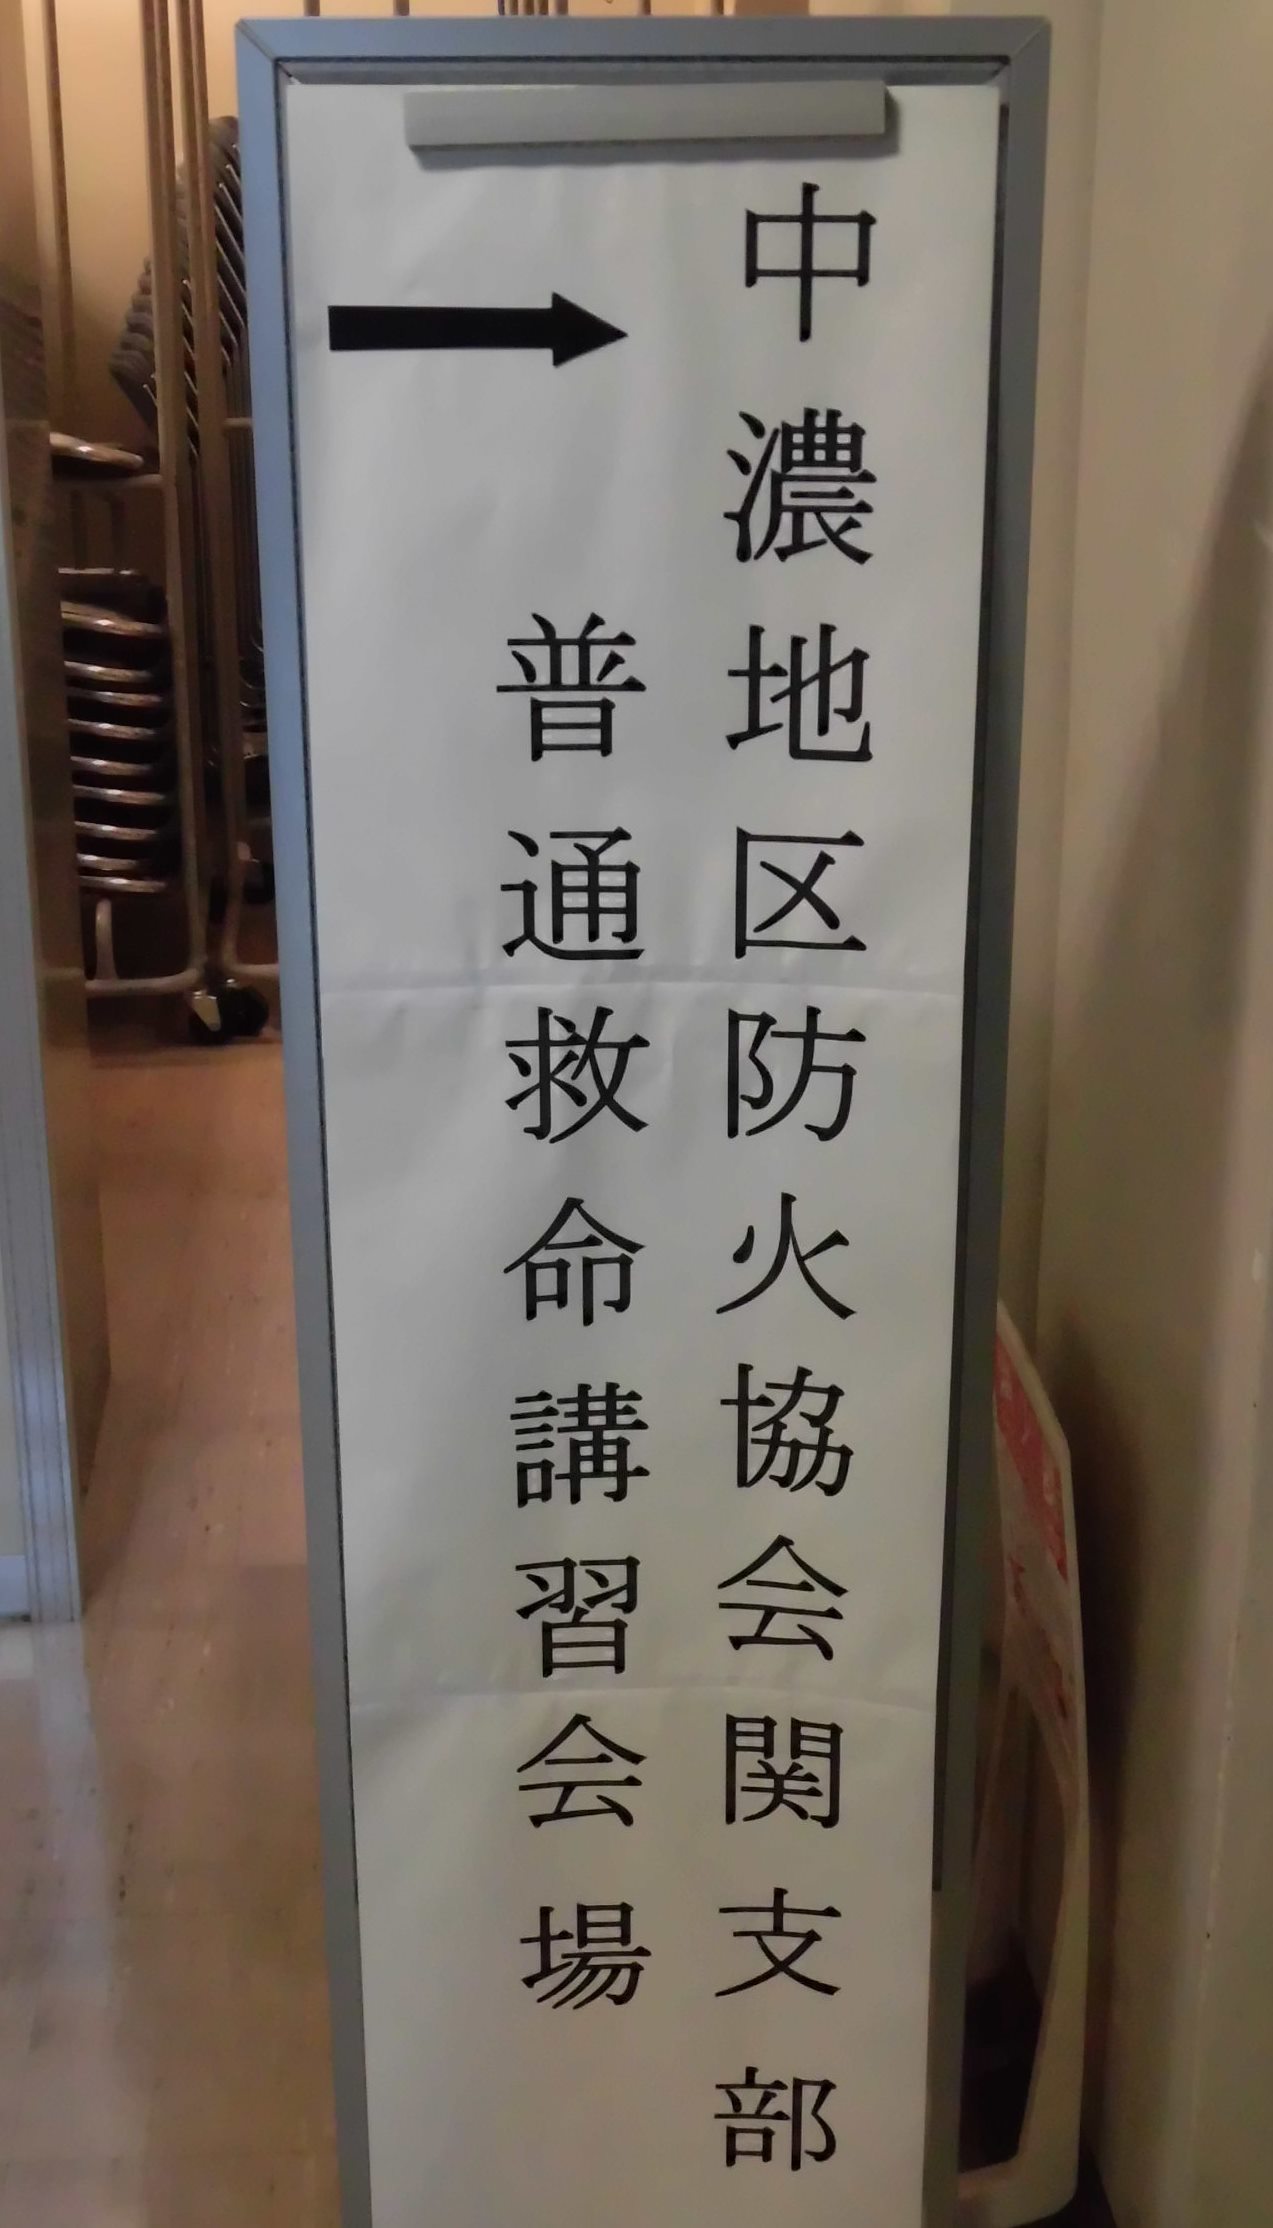 中濃地区防火協会関支部
普通救命講習会場